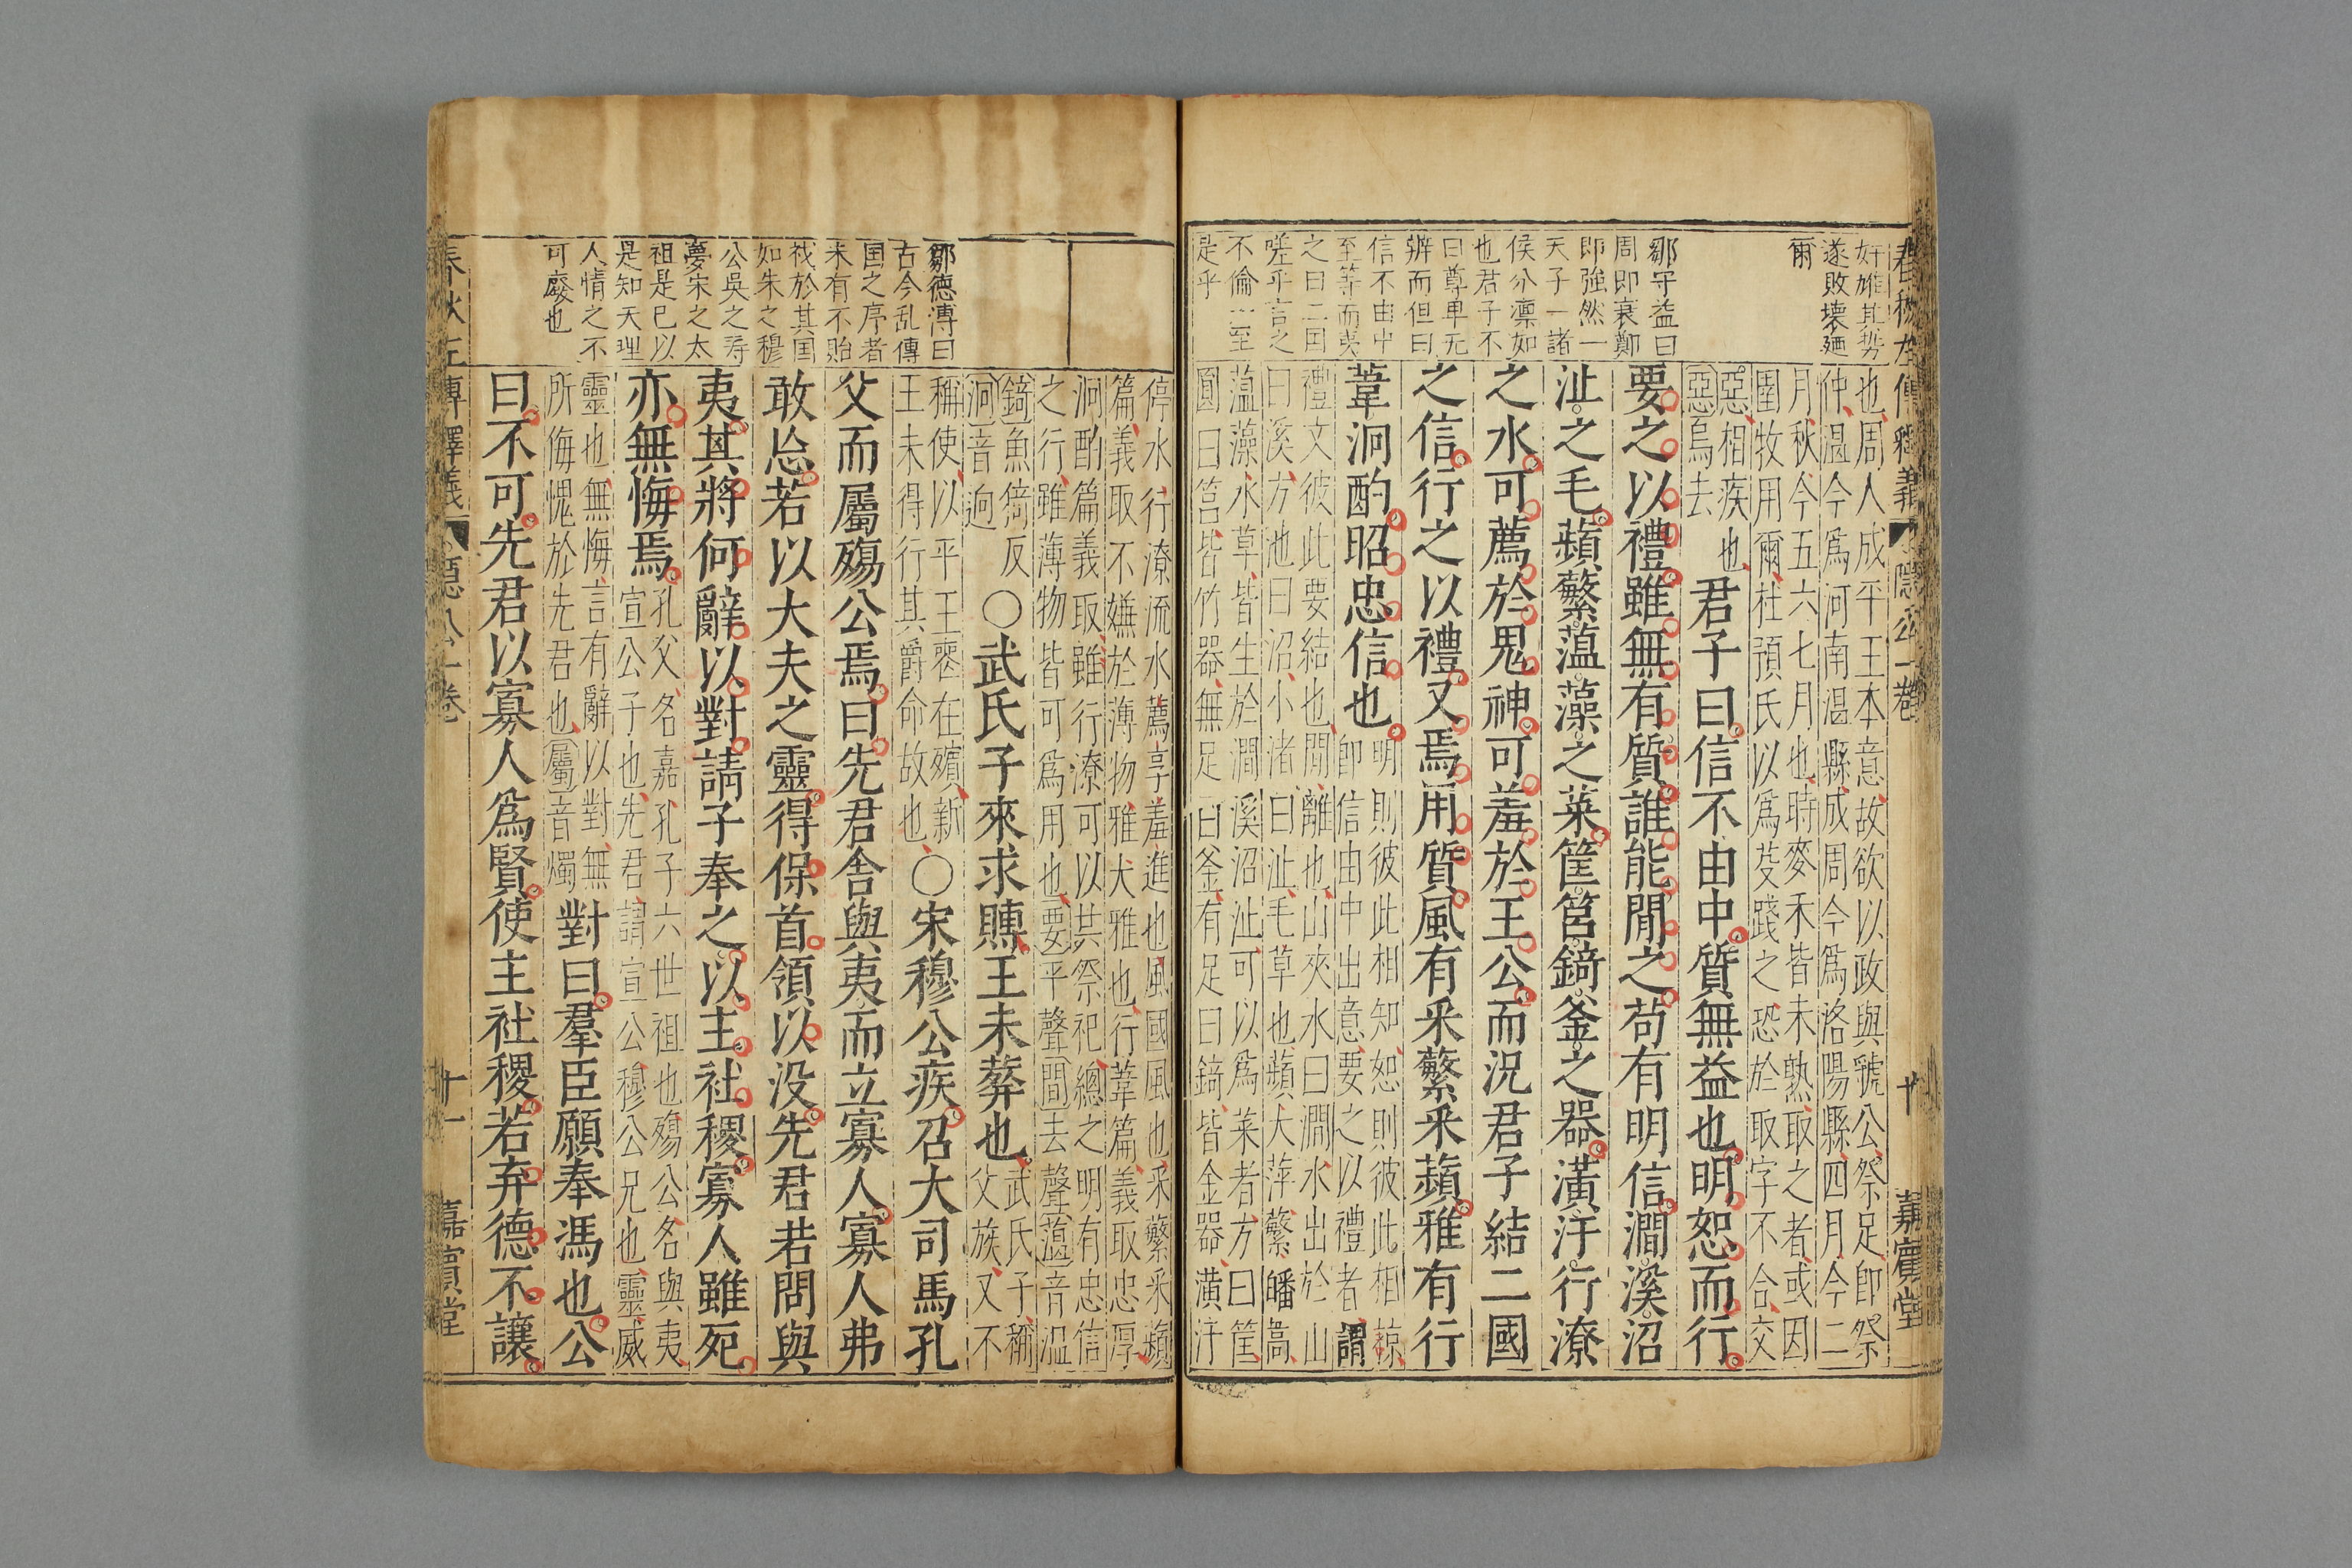 春秋左傳釋義 隱公一卷 十 嘉賓堂
奸雄其勢
遂敗壞廼
爾
鄒守益曰
周即衰鄭
即強然一
天子一諸
侯分凛如
也君子不
曰尊卑无
辨而但曰
信不由中
至等而夷
之曰二国
嗟乎言之
不倫一至
是乎
也周人成平王本意故欲以政與虢公祭足即祭
仲溫今為河南溫縣成周今為洛陽縣四月今二
月秋今五六七月也時麥禾皆未熟取之者或因
圉牧用爾杜預氏以為芟踐之恐於取字不合交
惡相疾也
惡烏去
君子曰信不由中質無益也明恕而行
要之以禮雖無有質誰能閒之苟有明信澗溪沼
沚之毛蘋蘩薀藻之菜筐筥錡釜之器潢汙行潦
之水可薦於鬼神可羞於王公而況君子結二國
之信行之以禮又焉用質風有采蘩采蘋雅有行
葦泂酌昭忠信也
明則彼此相知恕則彼此相諒
即信由中出意要之以禮者謂
禮文彼此要結也閒離也山夾水曰澗水出於山
曰溪方池曰沼小渚曰沚毛草也蘋大萍蘩皤蒿
薀藻水草皆生於澗溪沼沚可以為菜者方曰筐
圓曰筥皆竹器無足曰釜有足曰錡皆金器潢汙
停水行潦流水薦享羞進也風國風也采蘩采蘋
篇義取不嫌於薄物雅大雅也行葦篇義取忠厚
泂酌篇義取雖行潦可以共祭祀總之明有忠信
之行雖薄物皆可為用也要平聲間去聲薀音溫
錡魚倚反
泂音迥
○武氏子來求賻王未葬也
武氏子稱
父族又不
稱使以平王喪在殯新
王未得行其爵命故也
○宋穆公疾召大司馬孔
父而屬殤公焉曰先君舍與夷而立寡人寡人弗
敢忘若以大夫之靈得保首領以没先君若問與
夷其將何辭以對請子奉之以主社稷寡人雖死
亦無悔焉
孔父名嘉孔子六世祖也殤公名與夷
宣公子也先君謂宣公穆公兄也靈威
靈也無悔言有辭以對無
所侮愧於先君也屬音燭
對曰羣臣願奉馮也公
曰不可先君以寡人為賢使主社稷若弃德不讓
鄒德溥曰
古今乱傳
国之序者
未有不貽
祅於其国
如朱之穆
公吳之寿
夢宋之太
祖是已以
是知天理
人情之不
可廢也
春秋左傳釋義 隱公一卷 十一 嘉賓堂